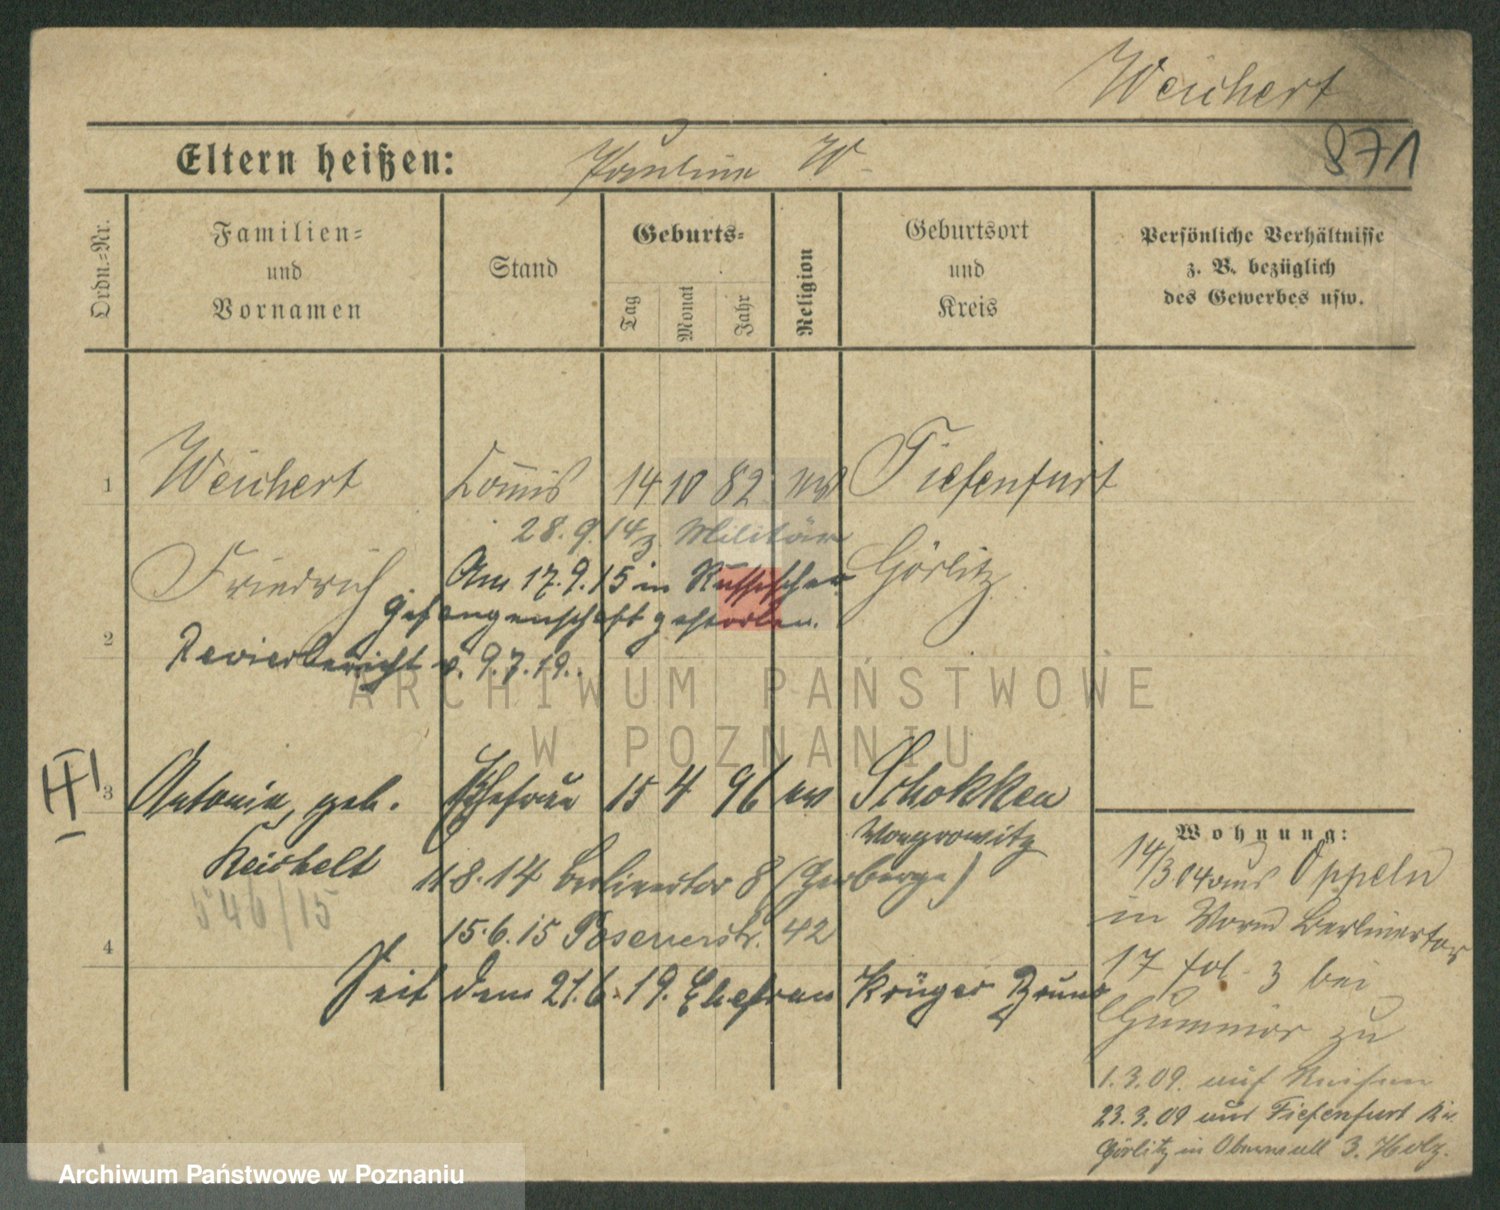 Weichert
871
Eltern heißen: Pauline W.
Ordn.=Nr.
Familien=
und
Vornamen
Stand
Geburts=
Tag
Monat
Jahr
Religion
Geburtsort
und
Kreis
Persönliche Verhältnisse
z. B. bezüglich
des Gewerbes usw.
1 Weichert Kommis 14 10 82 Tiefenfurt
28.9.14 z. Militär
Friedrich Görlitz
Am 17.9.15 in Russischer
Gefangenschaft gestorben.
2 Revierbericht v. 9.7.19.
3 Antonie, geb. Ehefrau 15 4 96 ev Schokken
Wongrowitz
Reichelt
1.8.14 Berlinertor 8 (Herberge)
546/15
15.6.15 Posenerstr. 42
4
Seit dem 21.6.19. Ehefrau Krüger Bruno
Wohnung:
14/3 04 aus Oppeln
in Berlinertor
17 bei
zu
1.3.09. auf Reisen
23.3.09 aus Tiefenfurt Kr.
Görlitz in 3.
ARCHIWUM PAŃSTWOWE
W POZNANIU
Archiwum Państwowe w Poznaniu